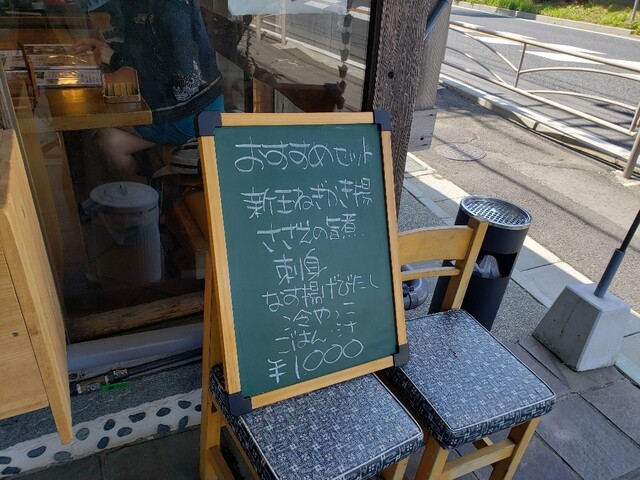 おすすめセット
新玉ねぎかき揚
さざえの旨煮
刺身
なす揚げびたし
冷やっこ
ごはん 汁
¥1000